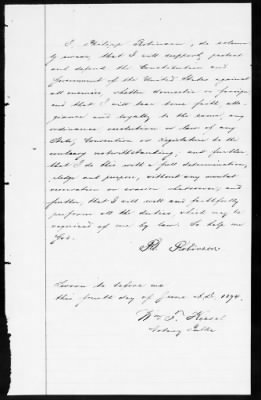 I, Philipp Robinson, do solemn-
ly swear, that I will support, protect
and defend the Constitution and
Government of the United States against
all enemies, whether domestic or foreign
and that I will bear true faith, alle-
giance and loyalty to the same, any
ordinance, resolution or law of any
State, Convention or legislature to the
contrary notwithstanding, and further
that I do this with a full determination,
pledge and purpose, without any mental
reservation or evasion whatsoever; and
further, that I will well and faithfully
perform all the duties, which may be
required of me by law. So help me
God.
Ph. Robinson
Sworn to before me
this fourth day of June A.D. 1874.
Wm F.
Notary Public